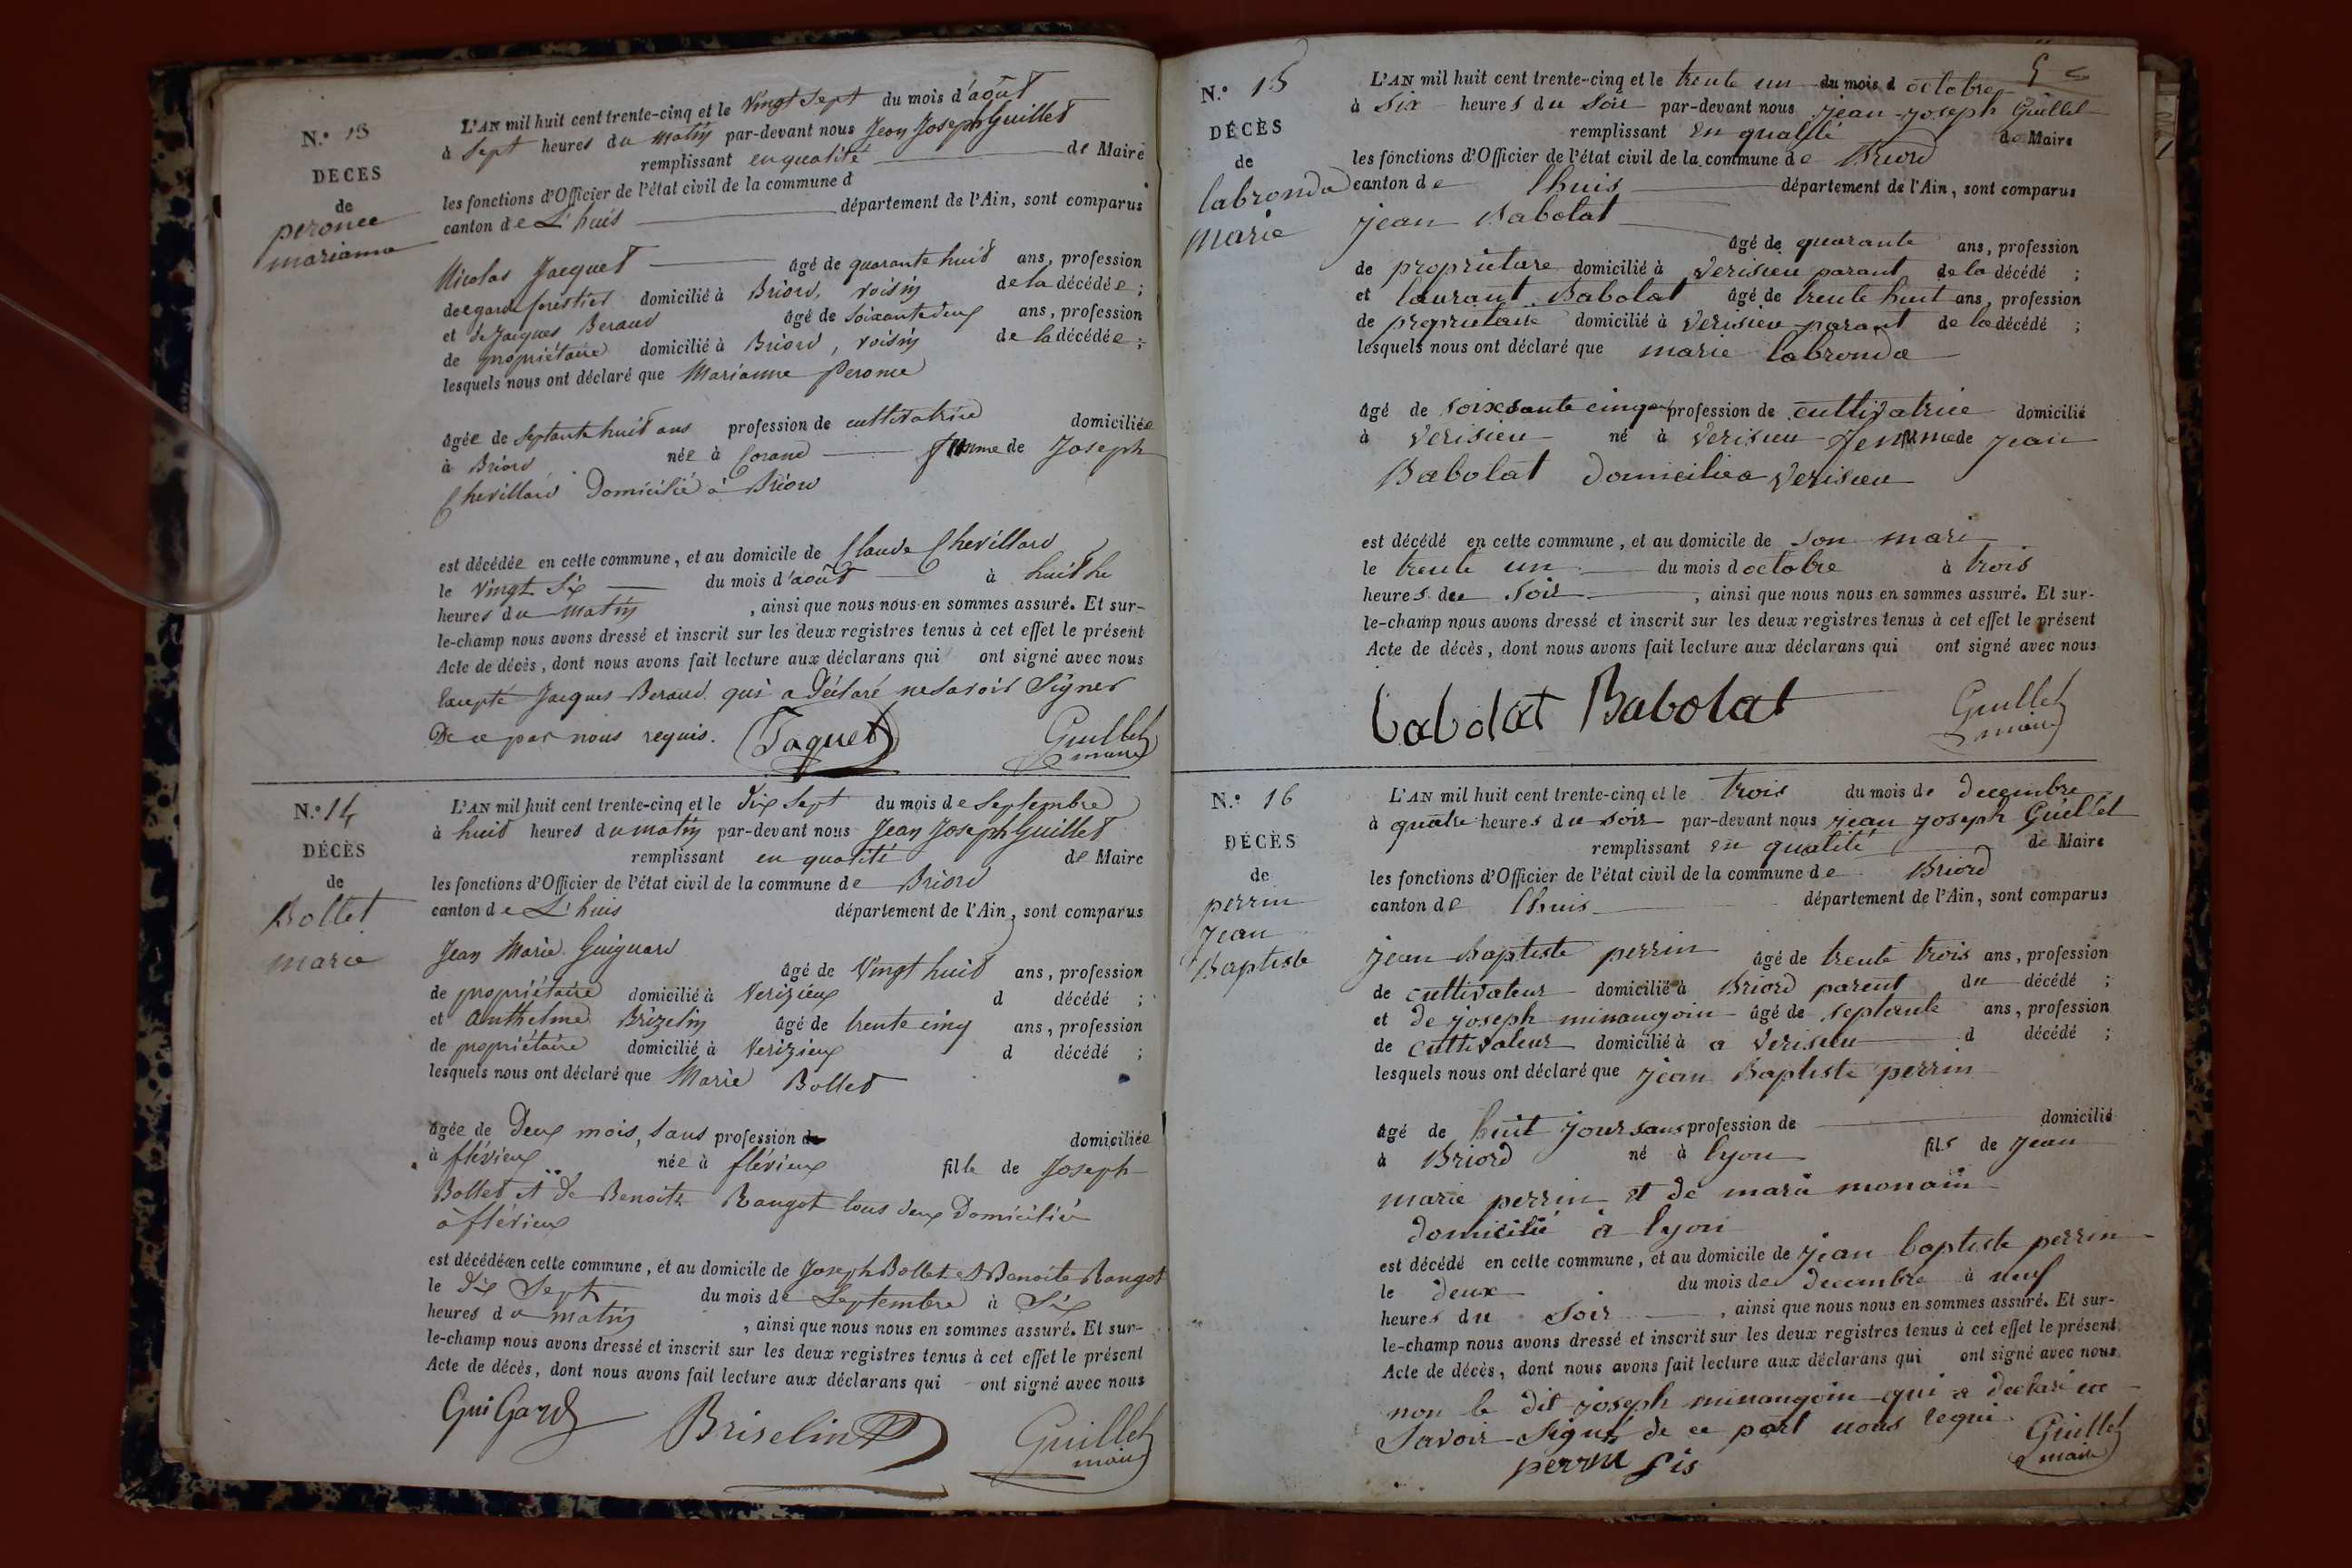 N.º 13
DECES
de
peronee
marianne
L'AN mil huit cent trente-cinq et le Vingt sept du mois d'août
à Sept heures du matin par-devant nous Jean Joseph Guillet
remplissant en qualité de Maire
les fonctions d'Officier de l'état civil de la commune d
canton de L'huis département de l'Ain, sont comparus
Nicolas Jacquet âgé de quarante huit ans, profession
de garde forestier domicilié à Briord, voisin de la décédée;
et de Jacques Beraud âgé de Soixante deux ans, profession
de propriétaire domicilié à Briord, voisin de la décédée;
lesquels nous ont déclaré que Marianne Peronee
âgée de Septante huit ans profession de cultivatrice domiciliée
à Briord née à femme de Joseph
Chevillard Domicilié à Briord
est décédée en cette commune, et au domicile de Claude Chevillard
le Vingt Six du mois d'août à huit he
heures du matin, ainsi que nous nous en sommes assuré. Et sur-
le-champ nous avons dressé et inscrit sur les deux registres tenus à cet effet le présent
Acte de décès, dont nous avons fait lecture aux déclarans qui ont signé avec nous
Excepté Jacques Beraud qui a Déclaré ne Savoir Signer
De ce par nous requis. Jaquet Guillet
maire
N.º 14
DÉCÈS
de
Bollet
marie
L'AN mil huit cent trente-cinq et le dix sept du mois de Septembre
à huit heures du matin par-devant nous Jean Joseph Guillet
remplissant en qualité de Maire
les fonctions d'Officier de l'état civil de la commune de Briord
canton de L'huis département de l'Ain, sont comparus
Jean Marie Guignard
âgé de Vingt huit ans, profession
de propriétaire domicilié à Verizieux d décédé;
et Anthelme Brizelin âgé de trente cinq ans, profession
de propriétaire domicilié à Verizieux d décédé;
lesquels nous ont déclaré que Marie Bollet
âgée de Deux mois, Sans profession de domiciliée
à flévieux née à flévieux fille de Joseph
Bollet et de Benoite Rangot tous deux Domiciliés
à flévieux
est décédée en cette commune, et au domicile de Joseph Bollet et Benoite Rangot
le dix Sept du mois de Septembre à Six
heures du matin, ainsi que nous nous en sommes assuré. Et sur-
le-champ nous avons dressé et inscrit sur les deux registres tenus à cet effet le présent
Acte de décès, dont nous avons fait lecture aux déclarans qui ont signé avec nous
GuiGard Briselin Guillet
maire
N.º 15
DÉCÈS
de
labronda
Marie
L'AN mil huit cent trente-cinq et le trente un du mois d octobre
à Six heures du Soir par-devant nous jean-joseph Guillet
remplissant en qualité de Maire
les fonctions d'Officier de l'état civil de la commune de Briord
canton de lhuis département de l'Ain, sont comparus
jean Babolat
âgé de quarante ans, profession
de propriétare domicilié à Verisieu parant de la décédé;
et laurant Babolat âgé de trente huit ans, profession
de propriétaire domicilié à Verisieu parant de la décédé;
lesquels nous ont déclaré que marie labronda
âgé de soixsante cinq an profession de cultivatrice domicilié
à Verisieu né à Verisieu femme de jean
Babolat domicilié a Verisieu
est décédé en cette commune, et au domicile de son mari
le trente un du mois d octobre à trois
heures du Soir, ainsi que nous nous en sommes assuré. Et sur-
le-champ nous avons dressé et inscrit sur les deux registres tenus à cet effet le présent
Acte de décès, dont nous avons fait lecture aux déclarans qui ont signé avec nous
babolat Babolat Guillet
maire
N.º 16
DÉCÈS
de
perrin
jean
Baptiste
L'AN mil huit cent trente-cinq et le trois du mois de decembre
à quatre heures du soir par-devant nous jean joseph Guillet
remplissant en qualité de Maire
les fonctions d'Officier de l'état civil de la commune de Briord
canton de lhuis département de l'Ain, sont comparus
jean Baptiste perrin âgé de trente trois ans, profession
de cultivateur domicilié à Briord parent du décédé;
et de joseph minangoin âgé de septente ans, profession
de cultivateur domicilié à a Verisieu d décédé;
lesquels nous ont déclaré que jean Baptiste perrin
âgé de huit jour sans profession de domicilié
à Briord né à lyon fils de jean
marie perrin et de marie monain
domicilié à lyon
est décédé en cette commune, et au domicile de jean baptiste perrin
le deux du mois de decembre à neuf
heures du Soir, ainsi que nous nous en sommes assuré. Et sur-
le-champ nous avons dressé et inscrit sur les deux registres tenus à cet effet le présent
Acte de décès, dont nous avons fait lecture aux déclarans qui ont signé avec nous
non le dit joseph minangoin qui a declaré ne
Savoir Signé de ce part nous requi Guillet
perrin fis maire